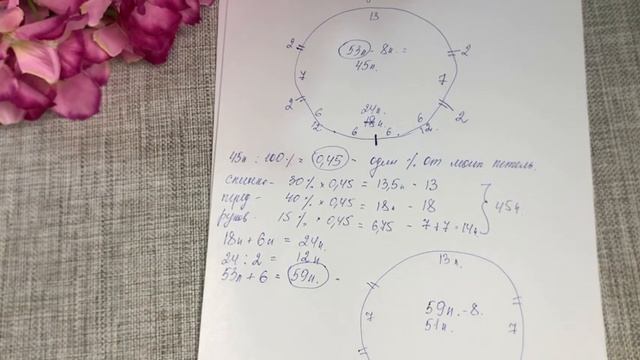 13
53п - 8п. =
45п.
2
2
7
7
2
2
24п.
18п
6
6
12
6
6.
2.
45п : 100% = 0,45 - один % от моих петель.
спинка - 30% × 0,45 = 13,5п - 13
перед - 40% × 0,45 = 18п - 18
рукав. 15% × 0,45 = 6,75 - 7+7=14п
45п
18п + 6п = 24п.
24 : 2 = 12п
53п + 6 = 59п. -
13п.
7
59п. - 8.
51п.
7